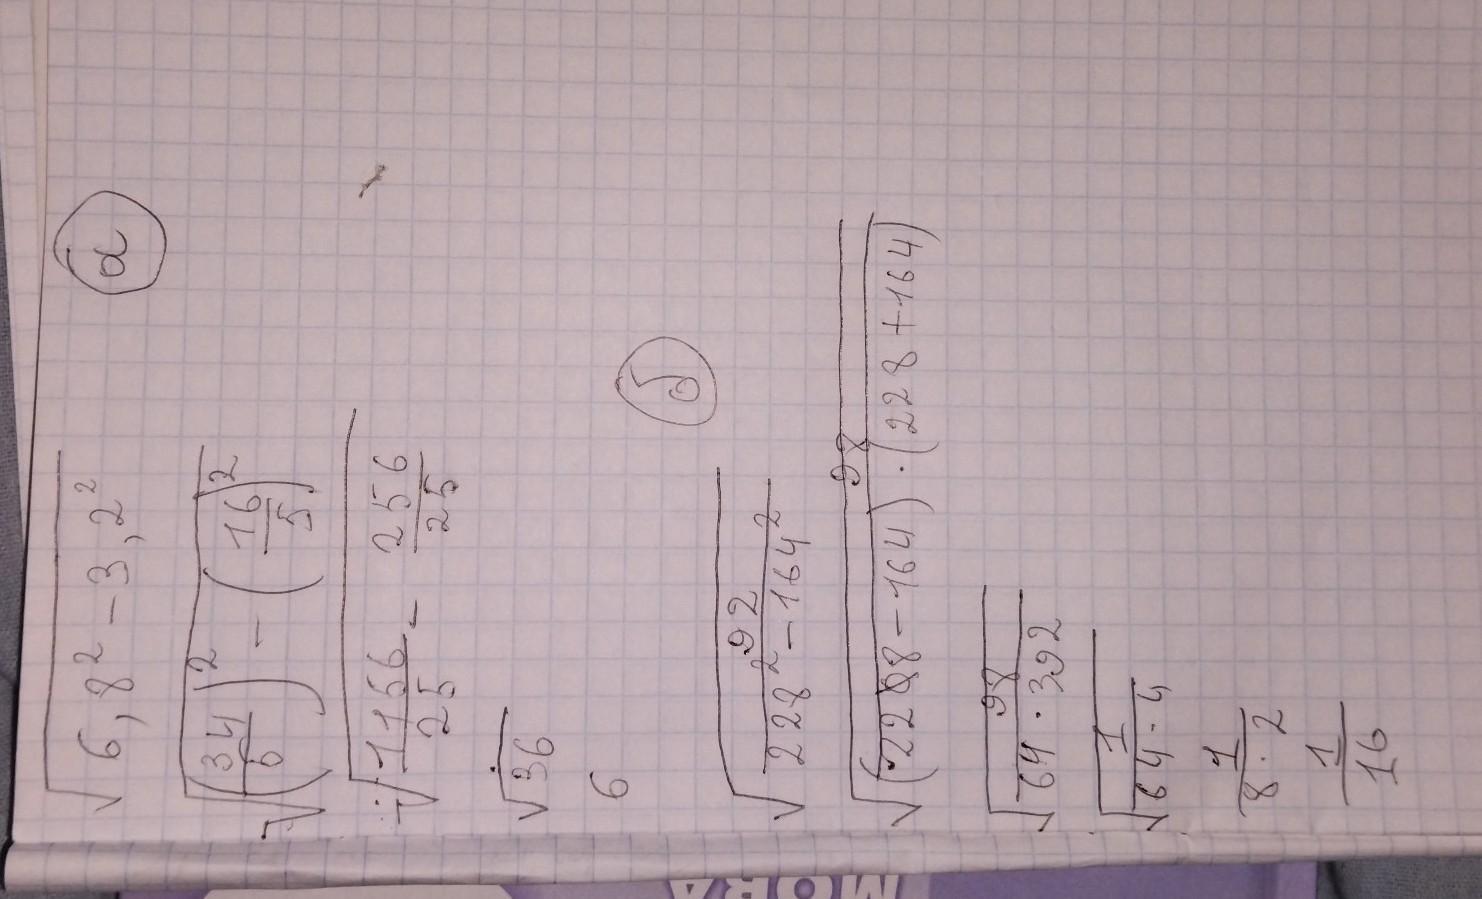 а
√(6,8² − 3,2²)
√((34/5)² − (16/5)²)
√(1156/25 − 256/25)
√36
6
б
√(98/(228² − 164²))
√(98/((228 − 164) · (228 + 164)))
√(98/(64 · 392))
√(1/(64 · 4))
1/(8 · 2)
1/16
MORA